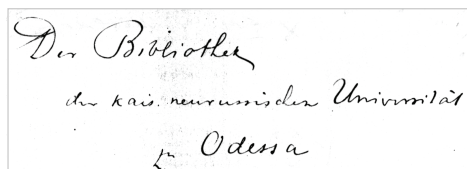 Der Bibliothek
der kais. neurussischen Universität
zu Odessa